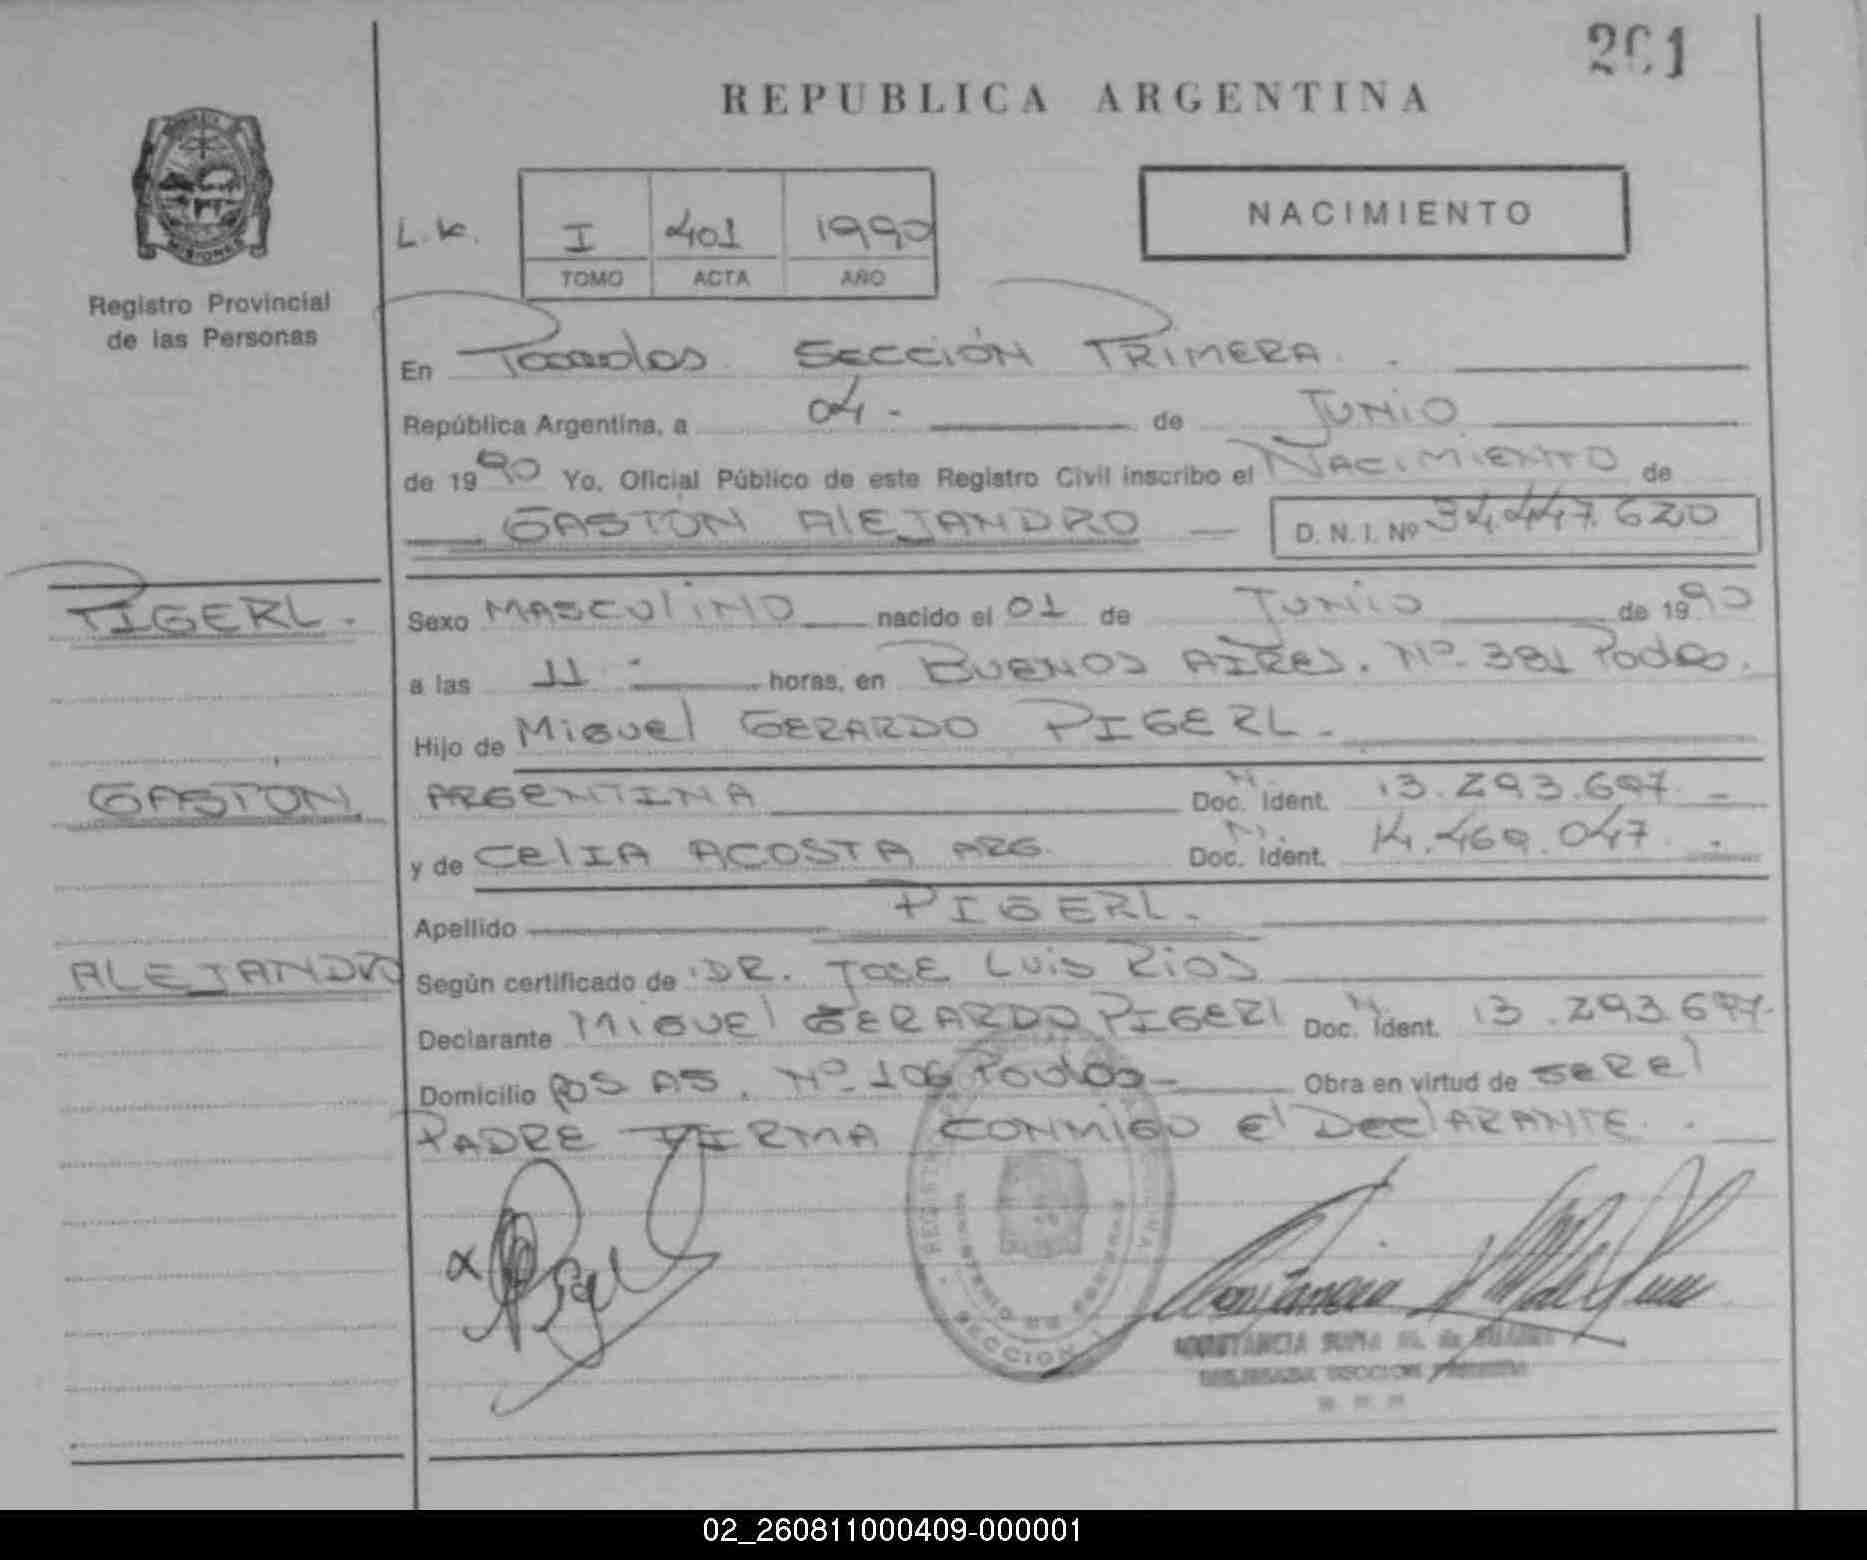 201
REPUBLICA ARGENTINA
MISIONES
Registro Provincial
de las Personas
L.K. I 401 1990
TOMO ACTA AÑO
NACIMIENTO
En Posadas. SECCIÓN PRIMERA.
República Argentina, a 04.- de JUNIO
de 1990 Yo, Oficial Público de este Registro Civil inscribo el NACIMIENTO de
GASTON AlEJANDRO D. N. I. Nº 34.447.620
PIGERL.
Sexo MASCULINO nacido el 01 de JUNIO de 1990
a las 11 horas, en BUENOS AIRES. Nº 381 Podas.
Hijo de Miguel GERARDO PIGERL.
GASTON
ARGENTINA Doc. Ident. 13.293.697.-
y de CelIA ACOSTA ARG. Doc. Ident. 14.469.047.
Apellido PIGERL.
ALEJANDRO
Según certificado de DR. JOSE LUIS RIOS
Declarante MIGUEl GERARDO PIGERl Doc. Ident. 13.293.697.
Domicilio BS AS. Nº 106 Podas Obra en virtud de SER El
PADRE FIRMA CONMIGO El DEClARANTE.
SECCION 1
CONSTANCIA
02_260811000409-000001